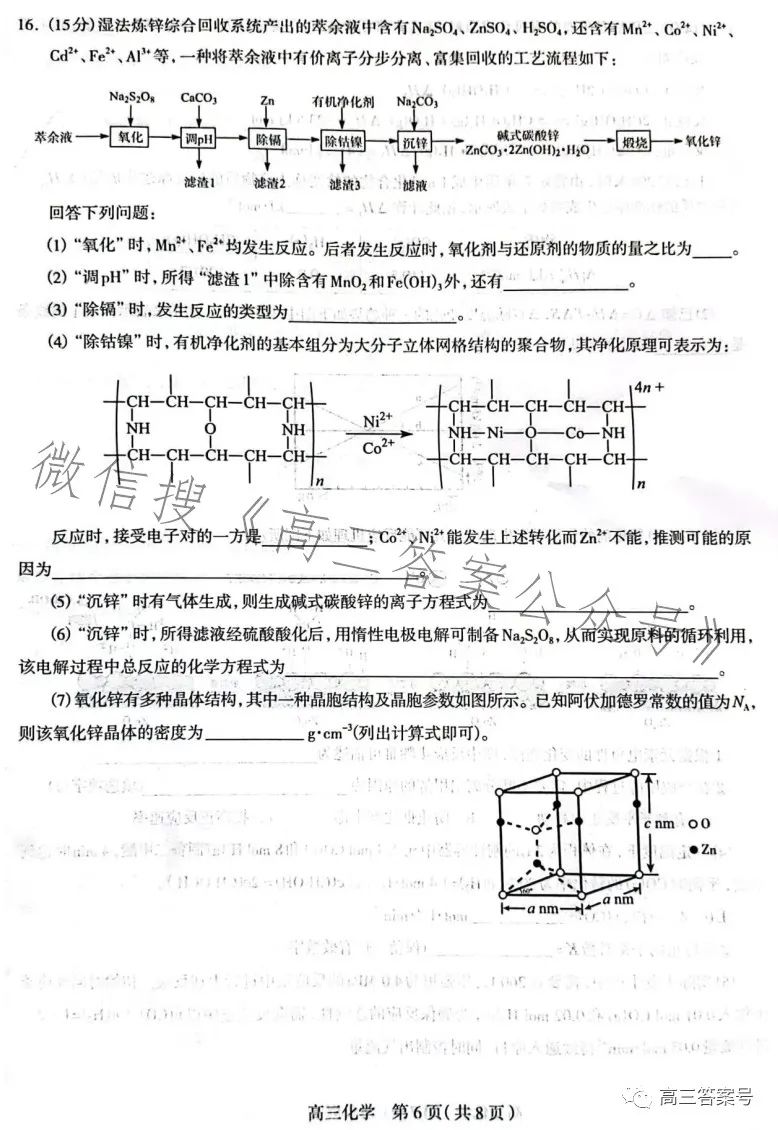 16. (15分)湿法炼锌综合回收系统产出的萃余液中含有Na₂SO₄、ZnSO₄、H₂SO₄,还含有Mn²⁺、Co²⁺、Ni²⁺、
Cd²⁺、Fe²⁺、Al³⁺等,一种将萃余液中有价离子分步分离、富集回收的工艺流程如下:
Na₂S₂O₈ CaCO₃ Zn 有机净化剂 Na₂CO₃
萃余液 氧化 调pH 除镉 除钴镍 沉锌 碱式碳酸锌 ZnCO₃·2Zn(OH)₂·H₂O 煅烧 氧化锌
滤渣1 滤渣2 滤渣3 滤液
回答下列问题:
(1)“氧化”时,Mn²⁺、Fe²⁺均发生反应。后者发生反应时,氧化剂与还原剂的物质的量之比为____。
(2)“调pH”时,所得“滤渣1”中除含有MnO₂和Fe(OH)₃外,还有________。
(3)“除镉”时,发生反应的类型为________。
(4)“除钴镍”时,有机净化剂的基本组分为大分子立体网格结构的聚合物,其净化原理可表示为:
4n+
CH—CH—CH—CH—CH CH—CH—CH—CH—CH
NH O NH Ni²⁺ Co²⁺ NH—Ni—O—Co—NH
CH—CH—CH—CH—CH CH—CH—CH—CH—CH
n n
反应时,接受电子对的一方是________;Co²⁺、Ni²⁺能发生上述转化而Zn²⁺不能,推测可能的原
因为________。
(5)“沉锌”时有气体生成,则生成碱式碳酸锌的离子方程式为________。
(6)“沉锌”时,所得滤液经硫酸酸化后,用惰性电极电解可制备Na₂S₂O₈,从而实现原料的循环利用,
该电解过程中总反应的化学方程式为________。
(7)氧化锌有多种晶体结构,其中一种晶胞结构及晶胞参数如图所示。已知阿伏加德罗常数的值为Nₐ,
则该氧化锌晶体的密度为________g·cm⁻³(列出计算式即可)。
c nm
○O
●Zn
60°
a nm
a nm
微信搜《高三答案公众号》
高三化学 第6页(共8页)
高三答案号